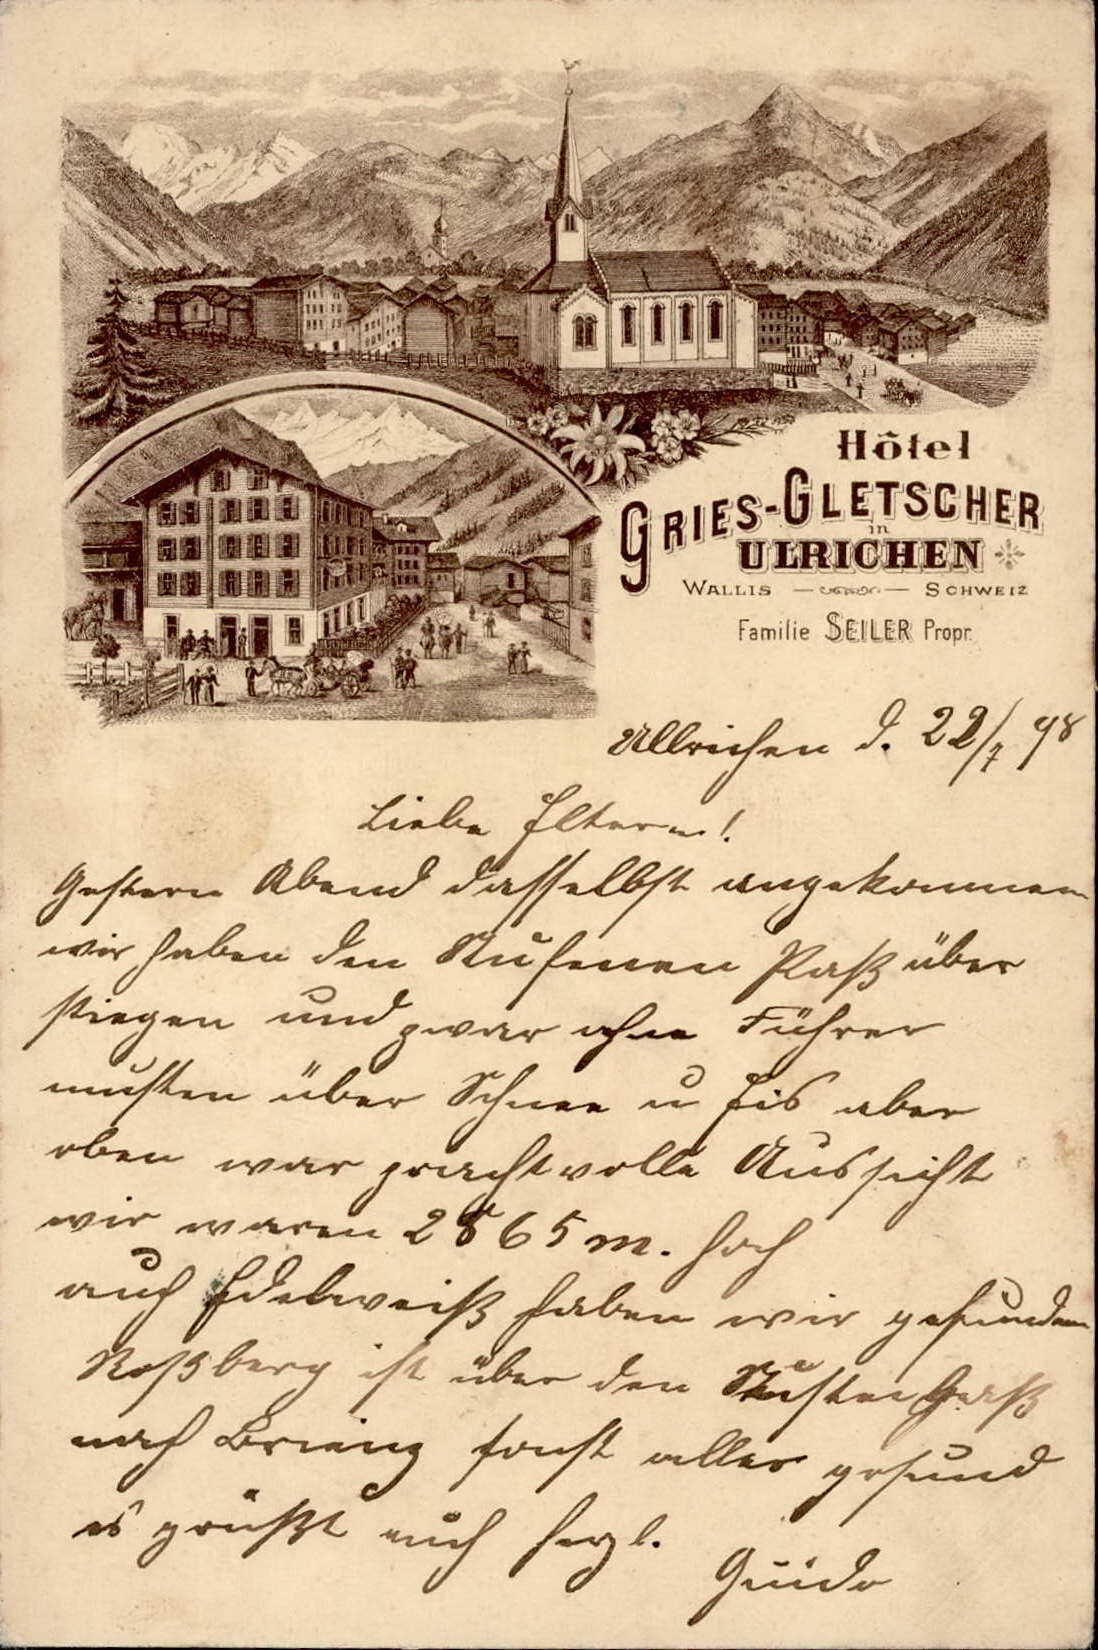 Hôtel
GRIES-GLETSCHER
in
ULRICHEN
WALLIS — SCHWEIZ
Familie SEILER Propr.
Ullrichen d. 22/7 98
Liebe Eltern!
Gestern Abend dasselbst angekommen
wir haben den Nufenen Paß über
stiegen und zwar ohne Führer
musten über Schnee u Eis aber
oben war prachtvolle Aussicht
wir waren 2565 m. hoch
auch Edelweiß haben wir gefunden
Roßberg ist über den
nach Brienz sonst alles gesund
es grüßt euch herzl.
Guido